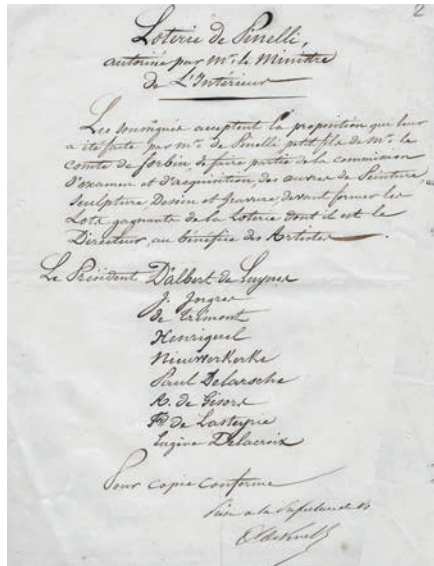 2
Loterie de Pinelli,
autorisée par Mr. le Ministre
de L'Intérieur
Les soussignés acceptent la proposition qui leur
a été faite par Mr. de Pinelli petit fils de Mr. le
comte de Forbin de faire partie de la commission
d'examen et d'acquisition, des œuvres de Peinture
Sculpture, Dessin et Gravure, devant former les
Lots gagnants de la Loterie dont il est le
Directeur, au bénéfice des Artistes
Le Président D'albert de Luynes
J. Ingres
de Trémont
Henriquel
Nieuwerkerke
Paul Delaroche
A. de Gisors
Fd de Lasteyrie
Eugène Delacroix
Pour copie conforme
a la Préfecture de